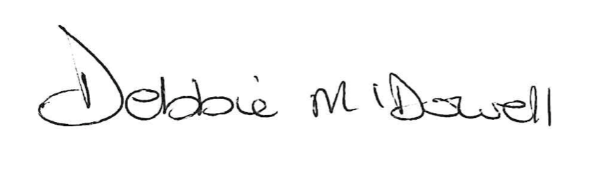 Debbie M'Dowell